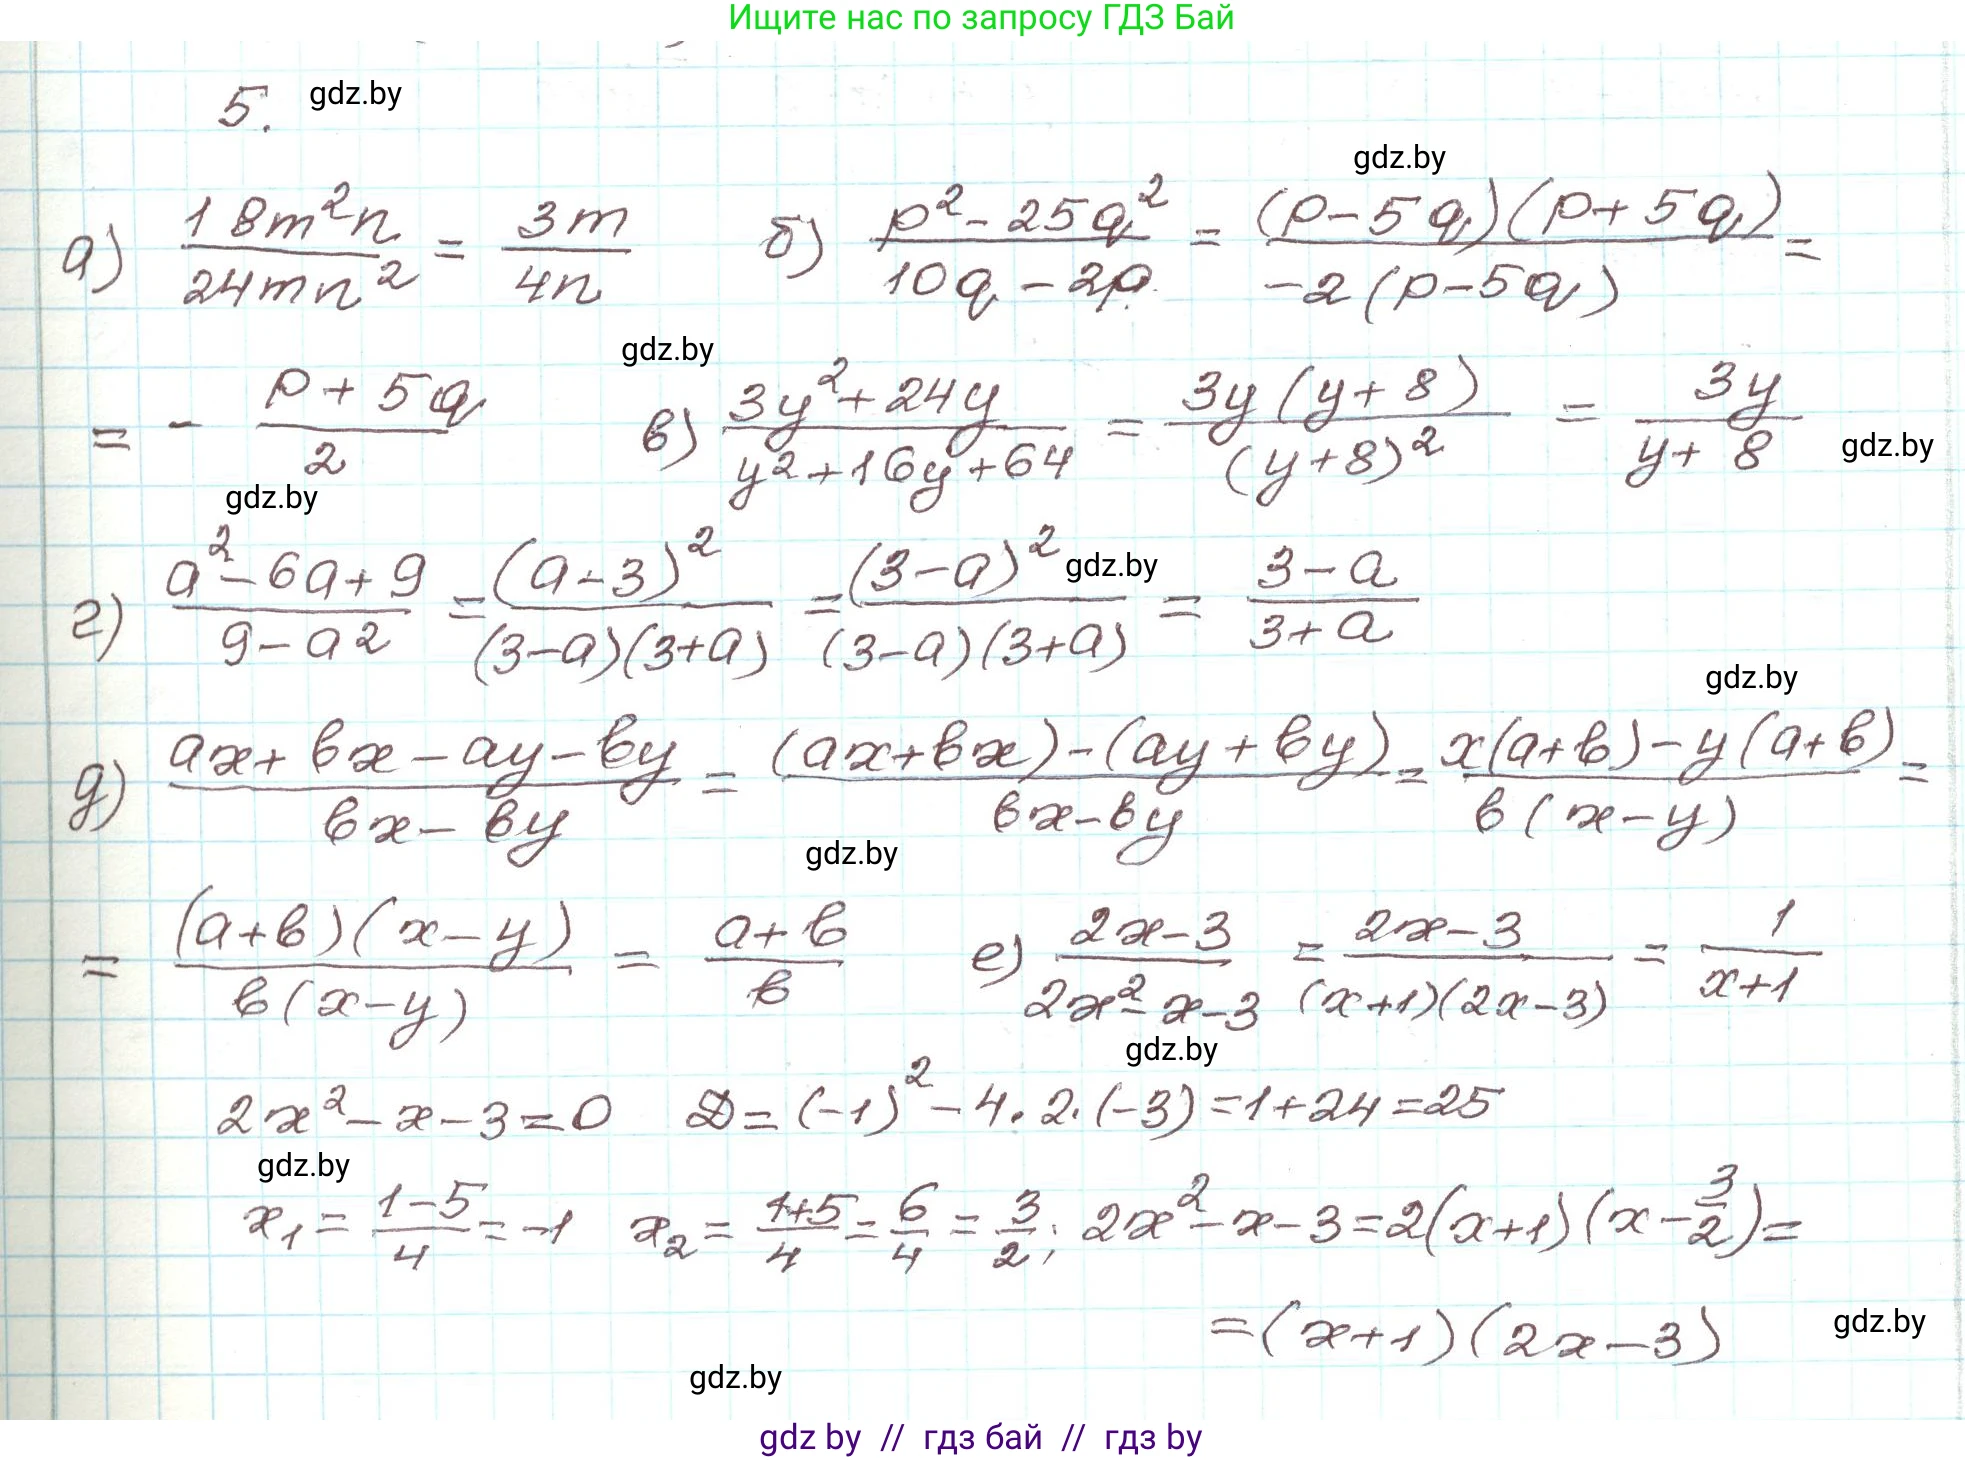 Ищите нас по запросу ГДЗ Бай
5. gdz.by
gdz.by
а) 18m²n/24mn² = 3m/4n б) p² - 25q²/10q - 2p = (p - 5q)(p + 5q)/-2(p - 5q) =
gdz.by
= - p + 5q/2 в) 3y² + 24y/y² + 16y + 64 = 3y(y + 8)/(y + 8)² = 3y/y + 8 gdz.by
gdz.by
г) a² - 6a + 9/9 - a² = (a - 3)²/(3 - a)(3 + a) = (3 - a)²/(3 - a)(3 + a) = 3 - a/3 + a
gdz.by
gdz.by
д) ax + bx - ay - by/bx - by = (ax + bx) - (ay + by)/bx - by = x(a + b) - y(a + b)/b(x - y) =
gdz.by
= (a + b)(x - y)/b(x - y) = a + b/b е) 2x - 3/2x² - x - 3 = 2x - 3/(x + 1)(2x - 3) = 1/x + 1
gdz.by
2x² - x - 3 = 0 D = (-1)² - 4·2·(-3) = 1 + 24 = 25
gdz.by
x₁ = 1 - 5/4 = -1 x₂ = 1 + 5/4 = 6/4 = 3/2; 2x² - x - 3 = 2(x + 1)(x - 3/2) =
= (x + 1)(2x - 3) gdz.by
gdz.by
gdz by // гдз бай // гдз by